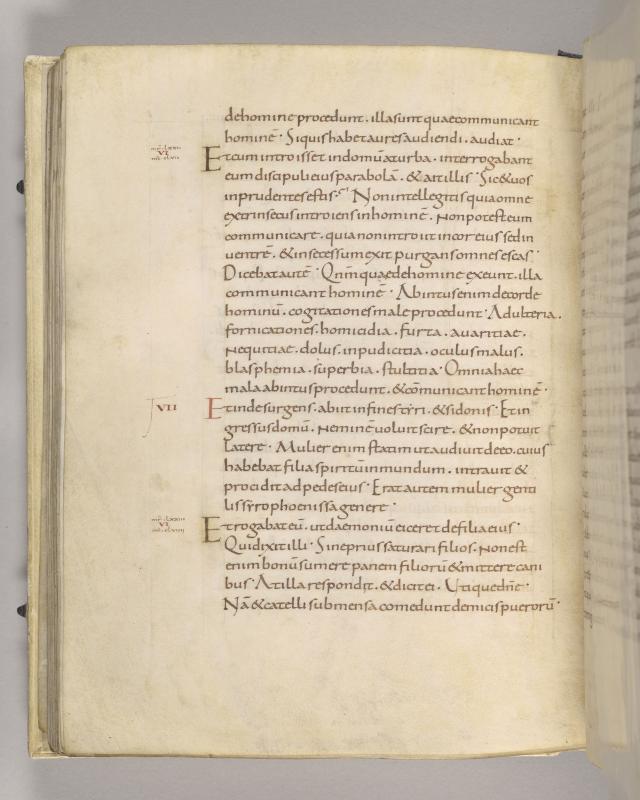 dehomine procedunt. illasunt quaecommunicant
hominē. Siquis habet aures audiendi. audiat.
VI
Et cum introisset in domū aturba. interrogabant
eum discipuli eius parabolā. & ait illis. Sic & uos
inprudentes estis. Non intellegitis quia omne
extrinsecus introiens in hominē. non potest eum
communicare. quia non introiit incor eius sed in
uentrē. & insecessum exit purgans omnes escas.
Dicebat autē. Qnm̄ quae de homine exeunt. illa
communicant hominē. Ab intus enim de corde
hominū. cogitationes male procedunt. Adulteria.
fornicationes. homicidia. furta. auaritiae.
nequitiae. dolus. inpudicitia. oculus malus.
blasphemia. superbia. stultitia. Omnia haec
mala abintus procedunt. & cōmunicant hominē.
VII
Et inde surgens. abiit in fines tyri. & sidonis. Et in
gressus domū. neminē uoluit scire. & non potuit
latere. Mulier enim statim ut audiuit deeo. cuius
habebat filia spiritū inmundum. intrauit &
procidit ad pedes eius. Erat autem mulier genti
lis syrophoenissa genere.
VI
Et rogabat eū. ut daemoniū eiceret de filia eius.
Qui dixit illi. Sine prius saturari filios. Non est
enim bonū sumere panem filiorū & mittere cani
bus. At illa respondit. & dicit ei. Utique dn̄e.
Nā & catelli sub mensa comedunt de micis puerorū.